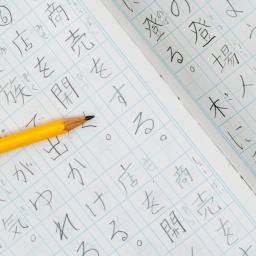 登場人
登る。木に
商売をする。商売を
店を開 。店を開
族 出かける。
がゆれる
気